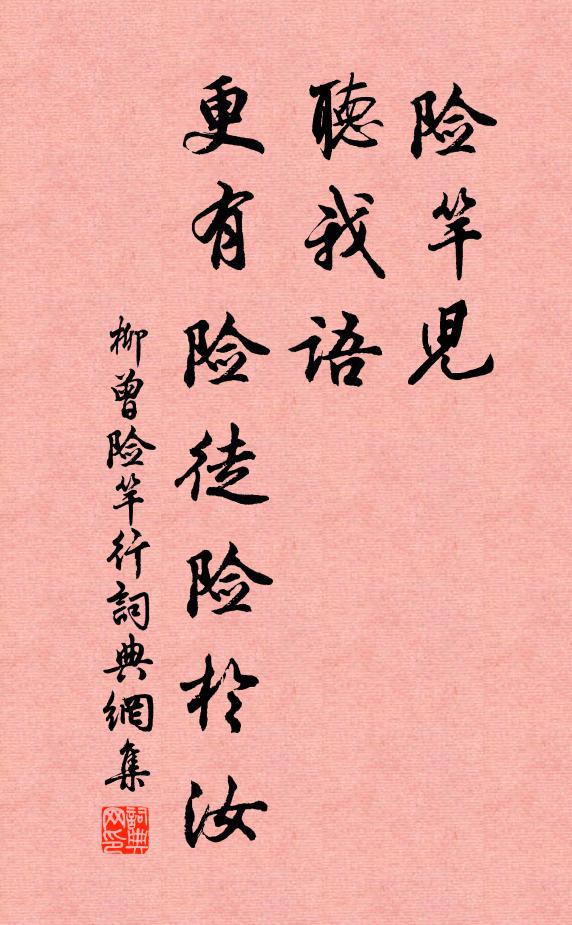 险竿兒
聽我語
更有险徒险於汝
柳曾险竿行詞典網集
詞典网印